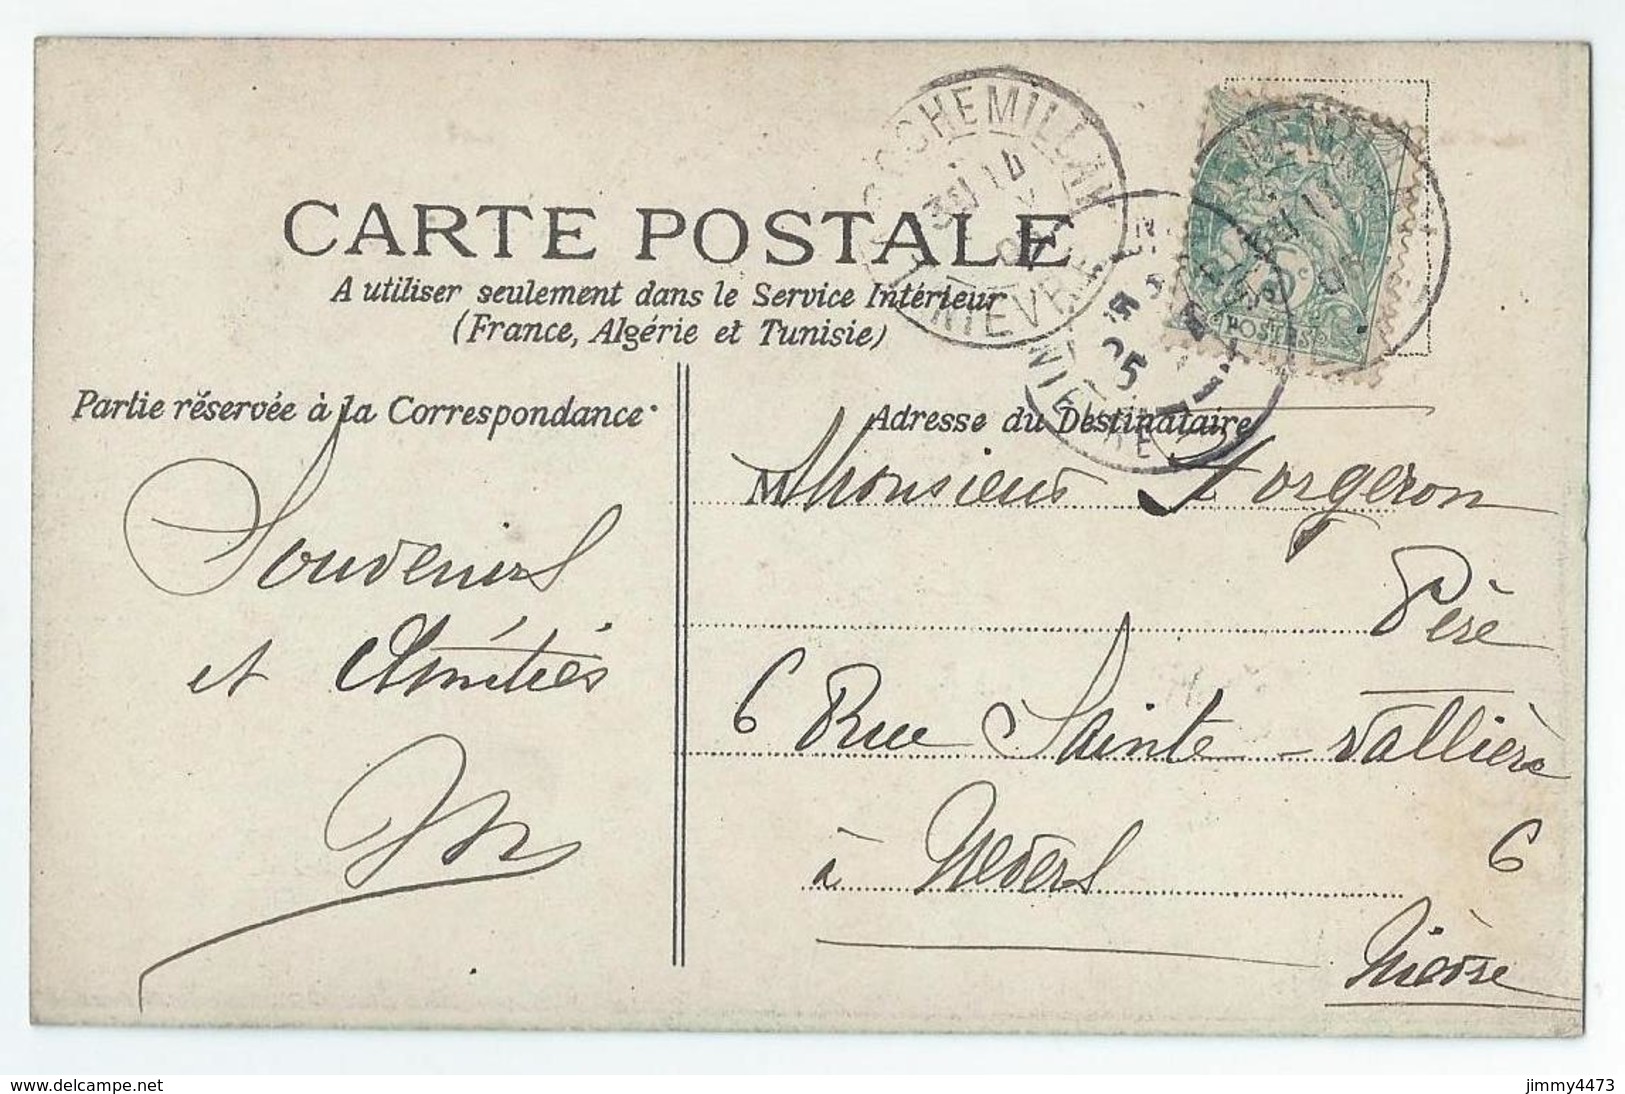 CARTE POSTALE
A utiliser seulement dans le Service Intérieur
(France, Algérie et Tunisie)
Partie réservée à la Correspondance
Adresse du Destinataire
Souvenirs
et Amitiés
M
Monsieur Forgeron
Père
6 Rue Sainte-Vallière
6
à Nevers
Nièvre
ROCHEMILLAY
NIÈVRE
NIEVRE
05
POSTES
delcampe.net
jimmy4473